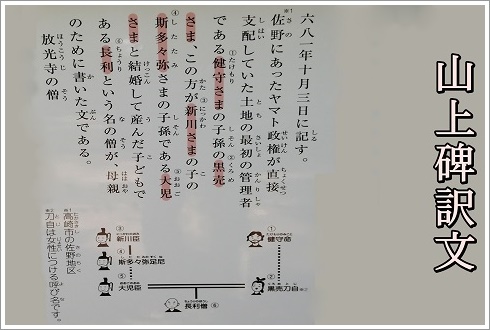 山上碑訳文
六八一年十月三日に記す。
※1佐野にあったヤマト政権が直接
支配していた土地の最初の管理者
である①健守さまの子孫の②黒売
さま、この方が③新川さまの子の
④斯多々弥さまの子孫である⑤大児
さまと結婚して産んだ子どもで
ある⑥長利という名の僧が、母親
のために書いた文である。
放光寺の僧
① 健守命
② 黒売刀自※2
③ 新川臣
④ 斯多々弥足尼
⑤ 大児臣
長利僧 ⑥
※1 高崎市の佐野地区
※2 刀自は女性につける呼び名です。